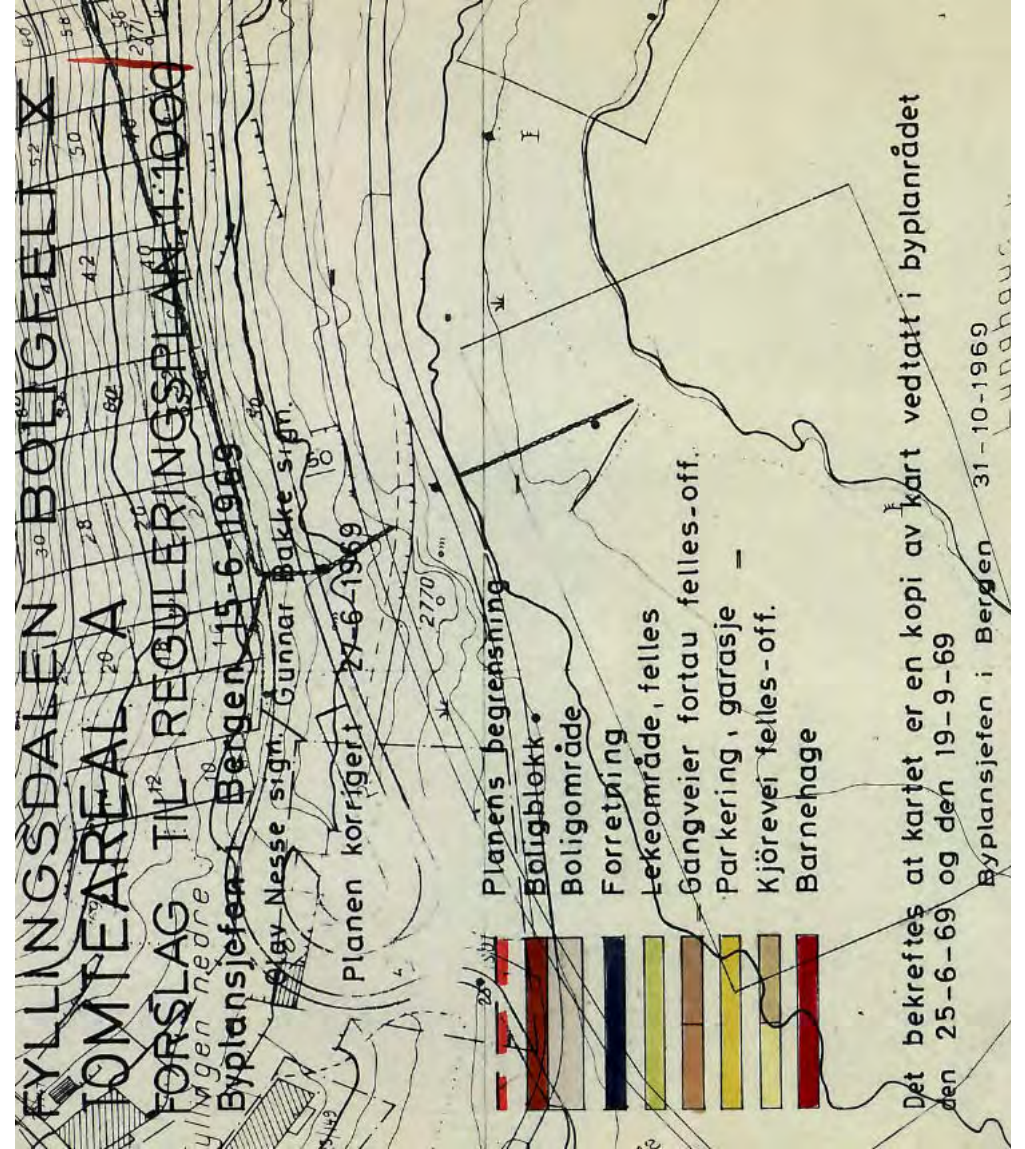 FYLLINGSDALEN BOLIGFELT X
TOMTEAREAL A
FORSLAG TIL REGULERINGSPLAN 1:1000
Byplansjefen i Bergen 15-6-1969
Olav Nesse sign. Gunnar Bakke sign.
Planen korrigert 27-6-1969
Planens begrensning
Boligblokk
Boligområde
Forretning
Lekeområde, felles
Gangveier fortau felles-off.
Parkering, garasje
Kjörevei felles-off.
Barnehage
Det bekreftes at kartet er en kopi av kart vedtatt i byplanrådet
den 25-6-69 og den 19-9-69
Byplansjefen i Bergen 31-10-1969
nedre
2770
2771
60
58
56
52
50
42
40
30
28
20
12
10